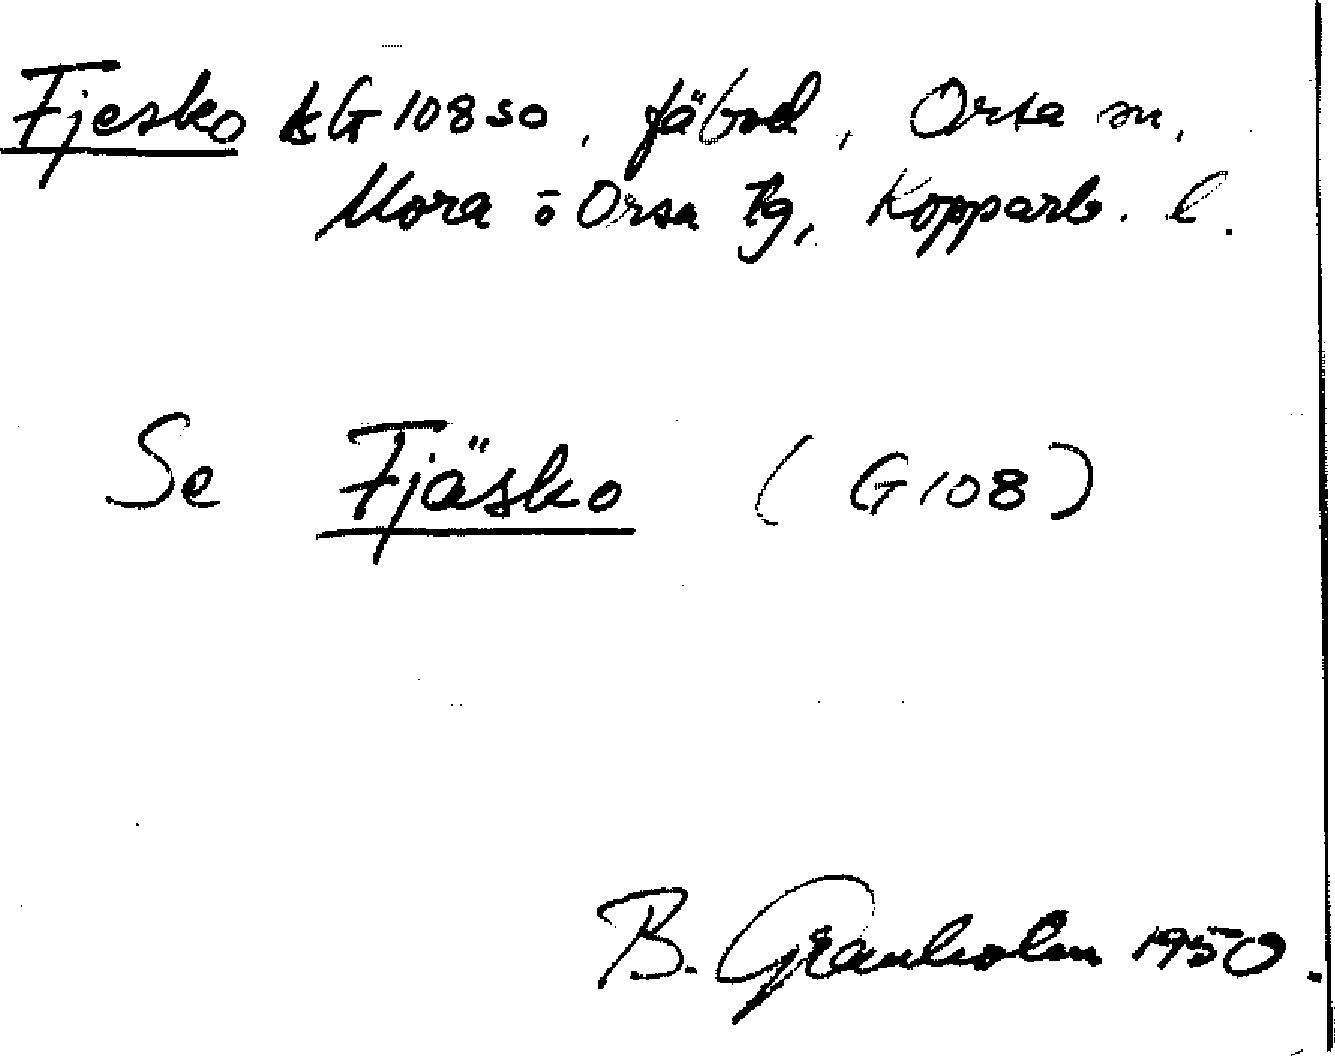 Fjesko kG 108 so, fäbod, Orsa sn,
Mora ō Orsa tg, Kopparb. l.
Se Fjäsko (G 108)
B. Granholm 1950.